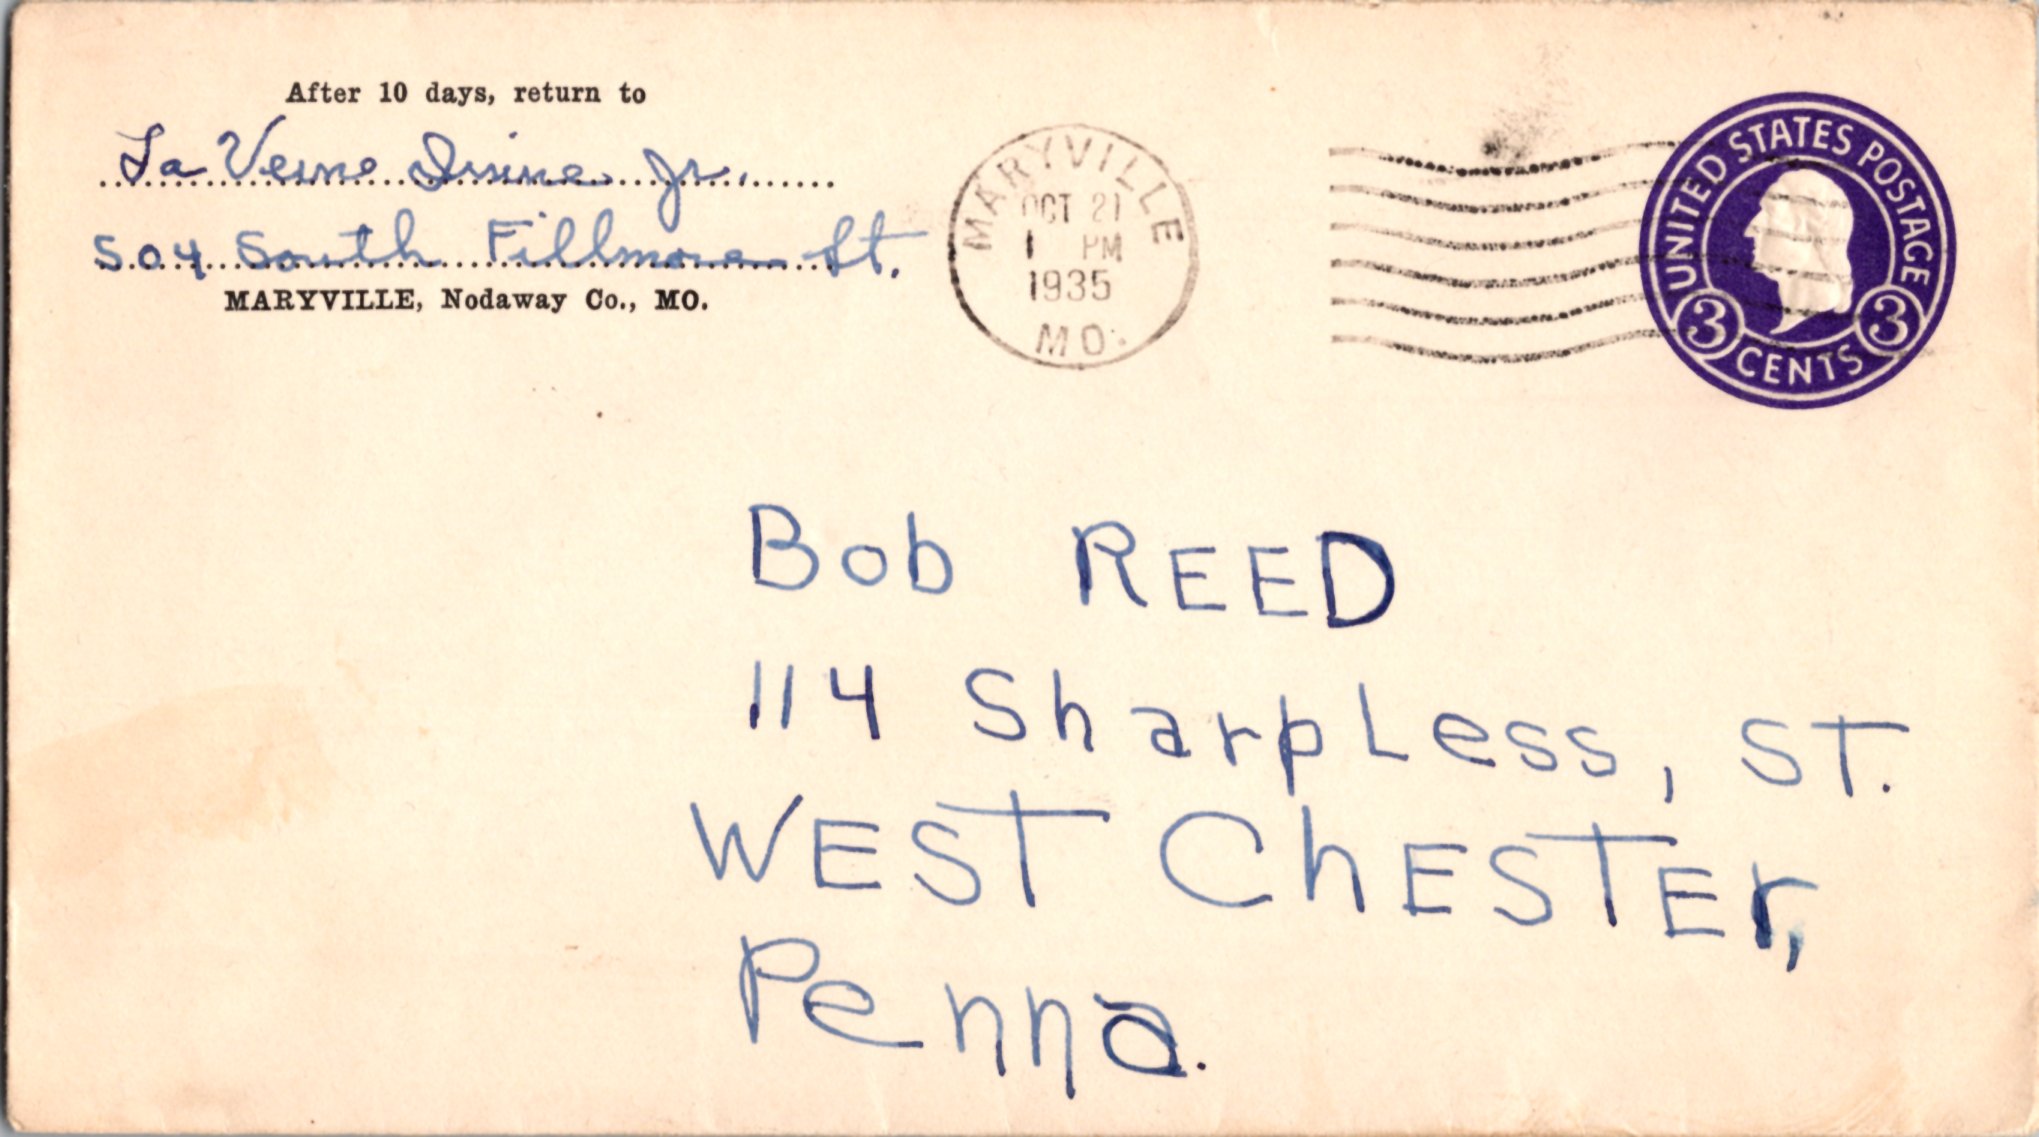 After 10 days, return to
La Verne Irvine Jr.
504 South Fillmore St.
MARYVILLE, Nodaway Co., MO.
MARYVILLE
OCT 21
1 PM
1935
MO.
UNITED STATES POSTAGE
3 CENTS 3
Bob REED
114 Sharpless, ST.
WEST ChESTEr,
Penna.